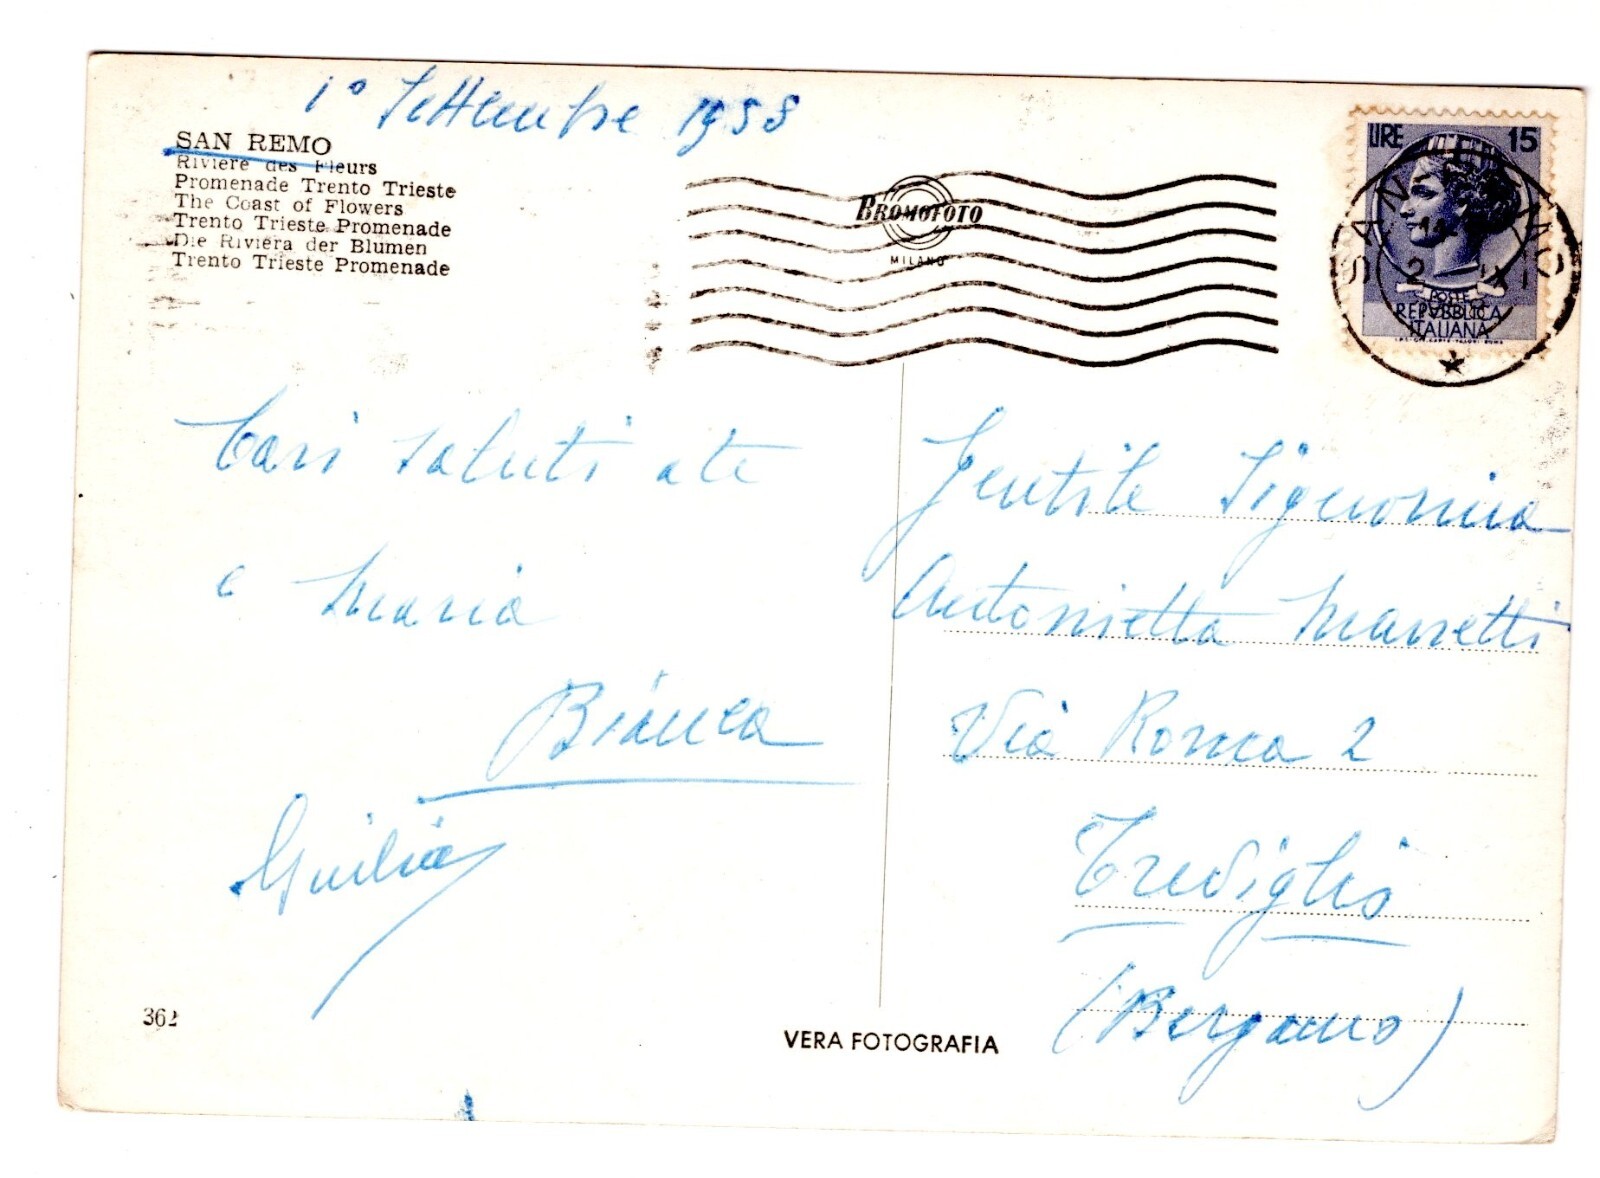 1° Settembre 1958
SAN REMO
Riviere des Fleurs
Promenade Trento Trieste
The Coast of Flowers
Trento Trieste Promenade
Die Riviera der Blumen
Trento Trieste Promenade
BROMOFOTO
MILANO
LIRE 15
POSTE
REPVBBLICA
ITALIANA
SAN REMO
Cari saluti a te
e Maria
Bianca
Giulia
Gentile Signorina
Antonietta
Via Roma 2
Treviglio
(Bergamo)
362
VERA FOTOGRAFIA